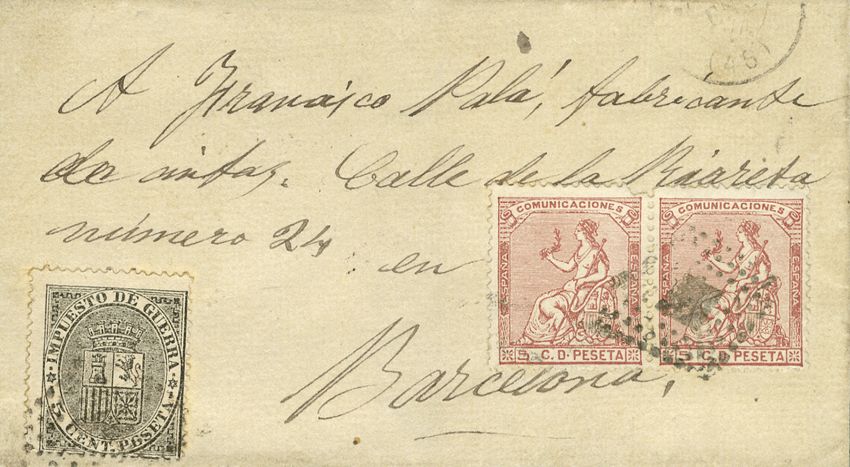 A Francisco Palá, fabricante
de cintas. Calle de la Riareta
número 24 en
Barcelona,
COMUNICACIONES
ESPAÑA ESPAÑA
5 C. D. PESETA
COMUNICACIONES
ESPAÑA ESPAÑA
5 C. D. PESETA
IMPUESTO DE GUERRA
5 CENT. PESETA